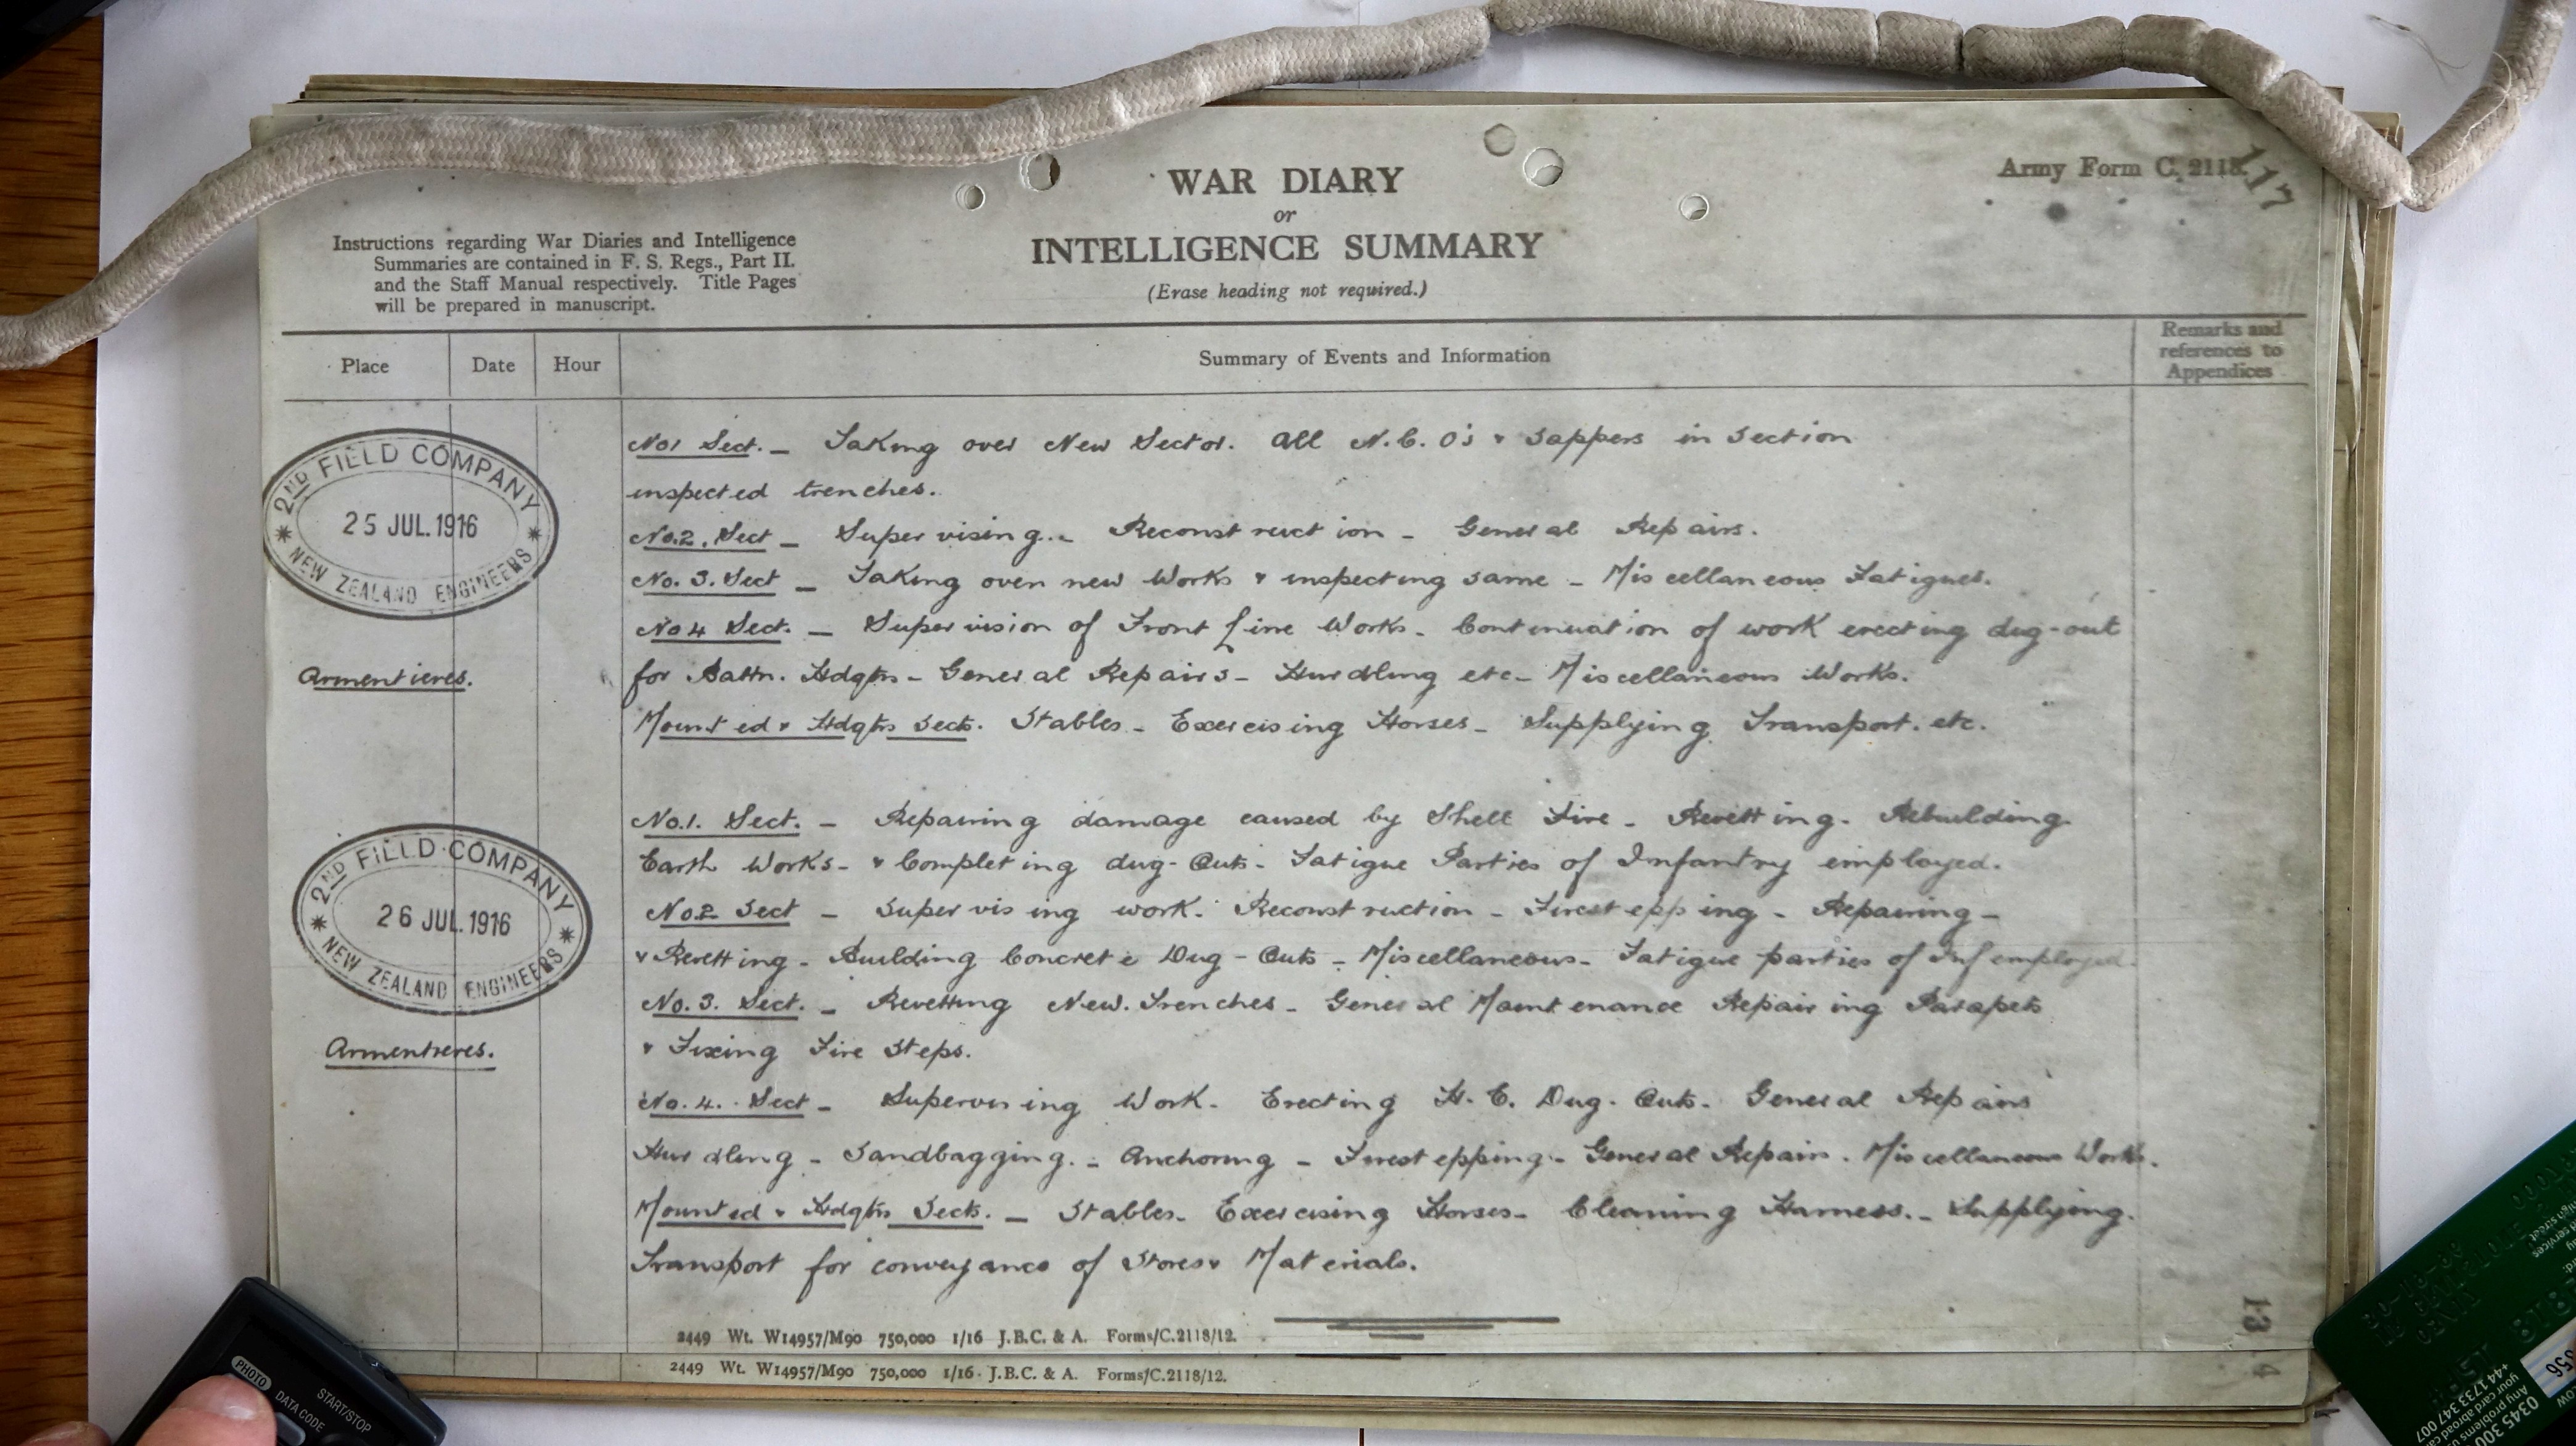 WAR DIARY
or
INTELLIGENCE SUMMARY
(Erase heading not required.)
Army Form C. 2118.
117
Instructions regarding War Diaries and Intelligence
Summaries are contained in F. S. Regs., Part II.
and the Staff Manual respectively. Title Pages
will be prepared in manuscript.
Place
Date
Hour
Summary of Events and Information
Remarks and
references to
Appendices
2ND FIELD COMPANY
25 JUL. 1916
NEW ZEALAND ENGINEERS
Armentieres.
No1 Sect. – Taking over New Sector. All N.C.O's & Sappers in Section
inspected trenches.
No.2. Sect – Supervising. – Reconstruction – General Repairs.
No. 3. Sect – Taking over new Works & inspecting same – Miscellaneous Fatigues.
No 4 Sect. – Supervision of Front Line Works. Continuation of work erecting dug-out
for Battn. Hdqtrs – General Repairs – Hurdling etc – Miscellaneous Works.
Mounted & Hdqtrs Sects. Stables – Exercising Horses – Supplying Transport. etc.
2ND FIELD COMPANY
26 JUL. 1916
NEW ZEALAND ENGINEERS
Armentieres.
No.1. Sect. – Repairing damage caused by Shell Fire – Revetting. Rebuilding
Earth Works – & Completing dug-Outs – Fatigue Parties of Infantry employed.
No.2 Sect – Supervising work. Reconstruction – Firestepping – Repairing –
& Revetting – Building Concrete Dug-Outs – Miscellaneous – Fatigue parties of Inf employed.
No. 3. Sect. – Revetting New Trenches – General Maintenance Repairing Parapets
& Fixing Fire Steps.
No. 4. Sect – Supervising Work. Erecting H.E. Dug-Outs. General Repairs
Hurdling – Sandbagging. – Anchoring – Firestepping – General Repairs. Miscellaneous Works.
Mounted & Hdqtrs Sects. – Stables – Exercising Horses – Cleaning Harness. – Supplying
Transport for conveyance of Stores & Materials.
2449 Wt. W14957/M90 750,000 1/16 J.B.C. & A. Forms/C.2118/12.
2449 Wt. W14957/M90 750,000 1/16 J.B.C. & A. Forms/C.2118/12.
13
4
PHOTO
DATA CODE
START/STOP
0345 300
+44 1733 347 007